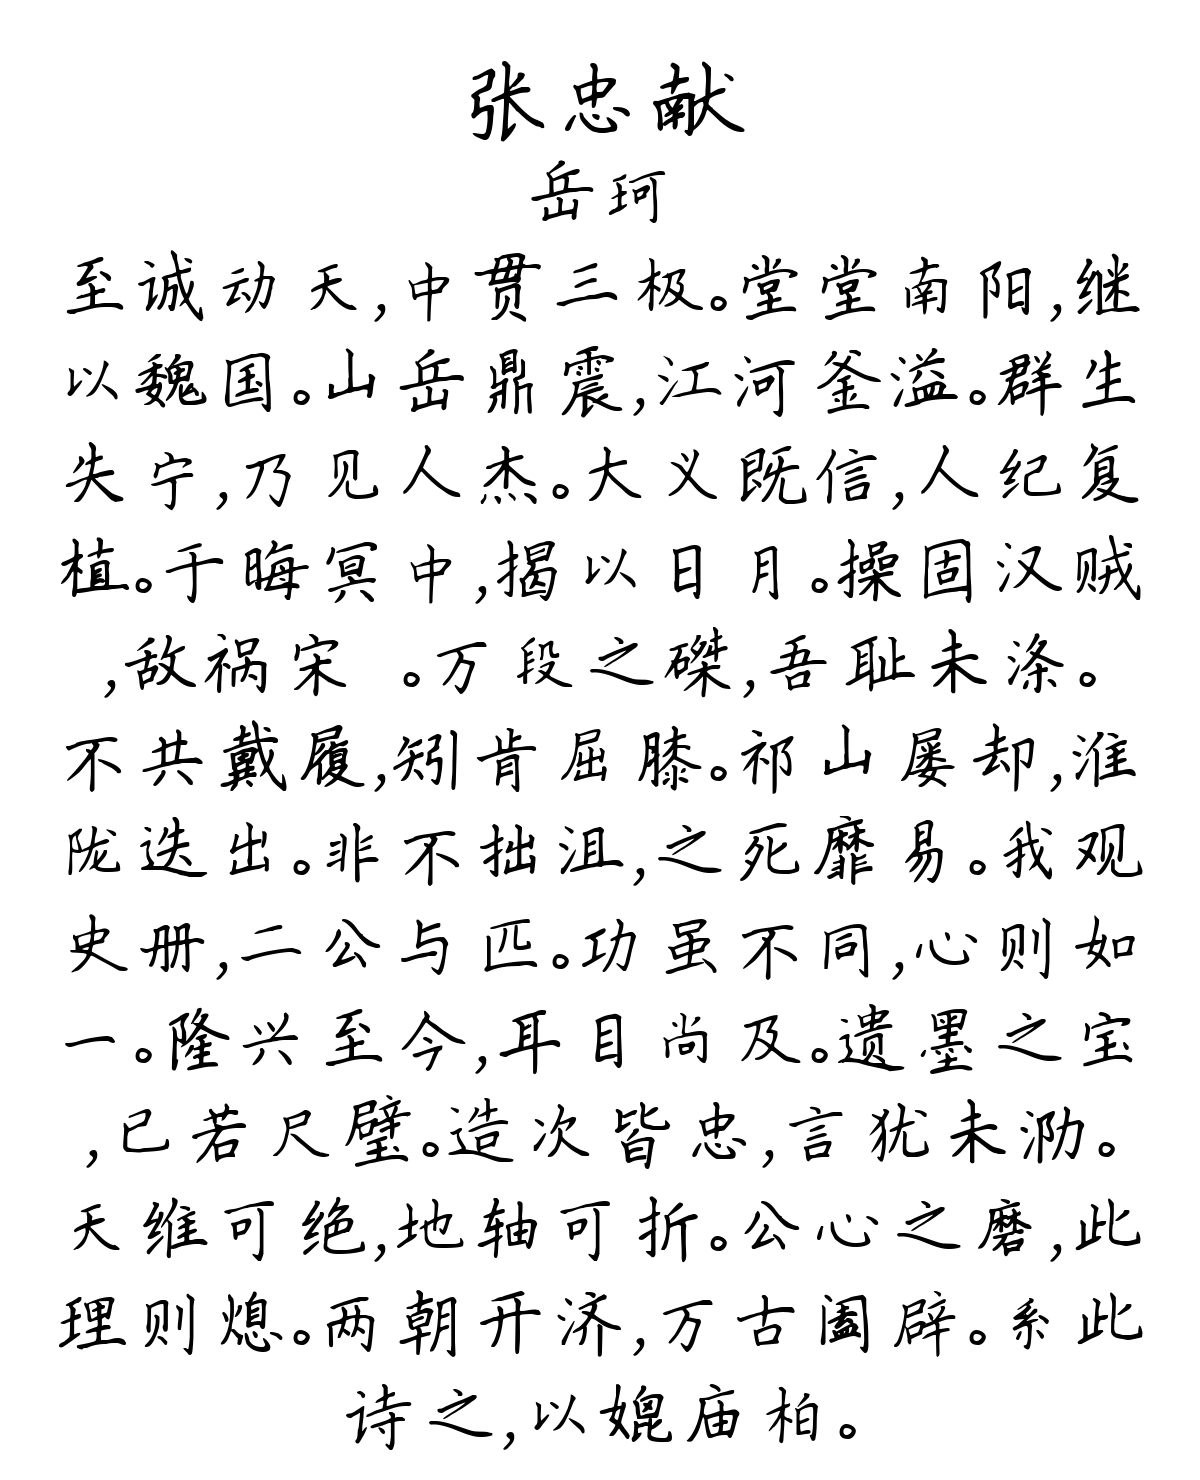 张忠献
岳珂
至诚动天,中贯三极。堂堂南阳,继
以魏国。山岳鼎震,江河釜溢。群生
失宁,乃见人杰。大义既信,人纪复
植。于晦冥中,揭以日月。操固汉贼
,敌祸宋 。万段之磔,吾耻未涤。
不共戴履,矧肯屈膝。祁山屡却,淮
陇迭出。非不拙沮,之死靡易。我观
史册,二公与匹。功虽不同,心则如
一。隆兴至今,耳目尚及。遗墨之宝
,已若尺璧。造次皆忠,言犹未泐。
天维可绝,地轴可折。公心之磨,此
理则熄。两朝开济,万古阖辟。系此
诗之,以媲庙柏。